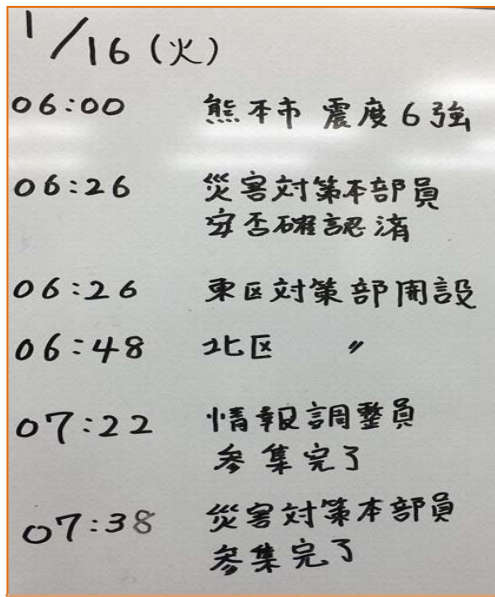 1/16(火)
06:00 熊本市 震度6強
06:26 災害対策本部員
安否確認済
06:26 東区対策部開設
06:48 北区 〃
07:22 情報調整員
参集完了
07:38 災害対策本部員
参集完了